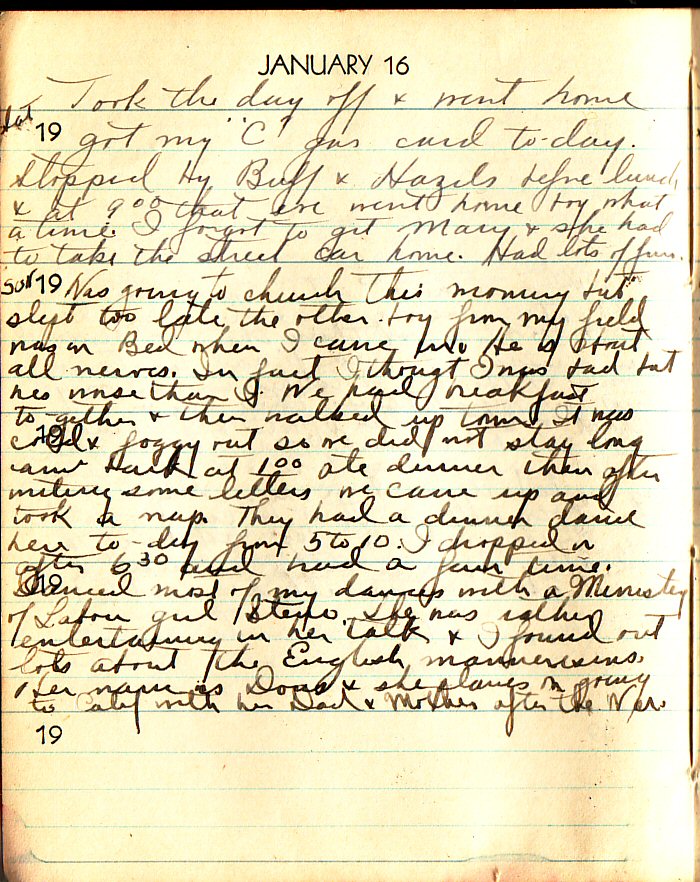 JANUARY 16
Took the day off & went home
Sat 19 got my "C" gas card to-day.
Stopped by Buff & Hazels before lunch
& at 9 00 that eve went home boy what
a time. I forgot to get Mary & she had
to take the street car home. Had lots of fun.
Sun 19 Was going to church this morning but
slept too late the other boy from my field
was in Bed when I came in. He is about
all nerves. In fact I thought I was bad but
hes worse than I. We had breakfast
to-gether & then walked up town. It was
19 cold & foggy out so we did not stay long
came back at 1 00 ate dinner then after
writing some letters we came up and
took a nap. They had a dinner dance
here to-day from 5 to 10. I dropped in
after 6 30 and had a fair time.
19 Danced most of my dances with a Ministry
of Labour girl Steno. She was rather
entertaining in her talk & I found out
lots about the English mannerisms.
Her name is & she plans on going
to Calif with her Dad & Mother after the War.
19